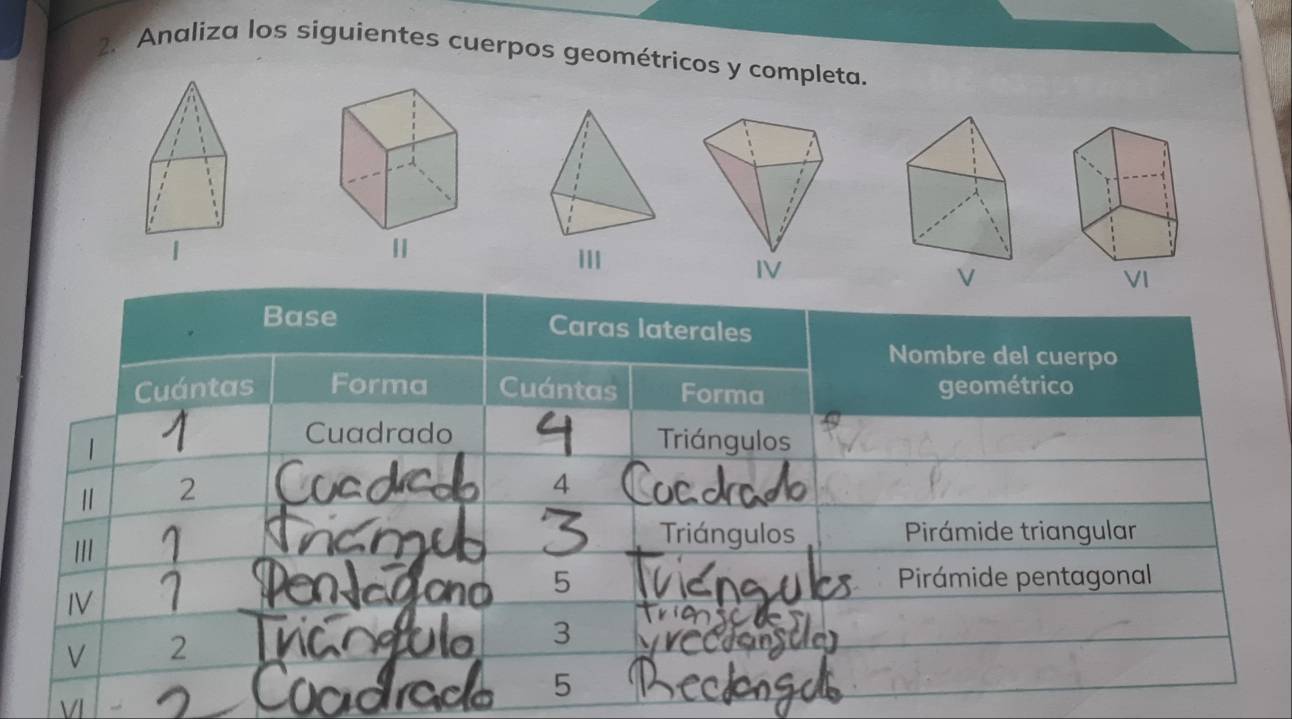 2. Analiza los siguientes cuerpos geométricos y completa.
I II III IV V VI
Base Caras laterales Nombre del cuerpo geométrico
Cuántas Forma Cuántas Forma
I 1 Cuadrado 4 Triángulos
II 2 Cuadrado 4 Cuadrado
III 1 Triángulo 3 Triángulos Pirámide triangular
IV 1 Pentágono 5 Triángulos Pirámide pentagonal
V 2 Triángulo 3 y rectángulos
VI 2 Cuadrado 5 Rectángulo